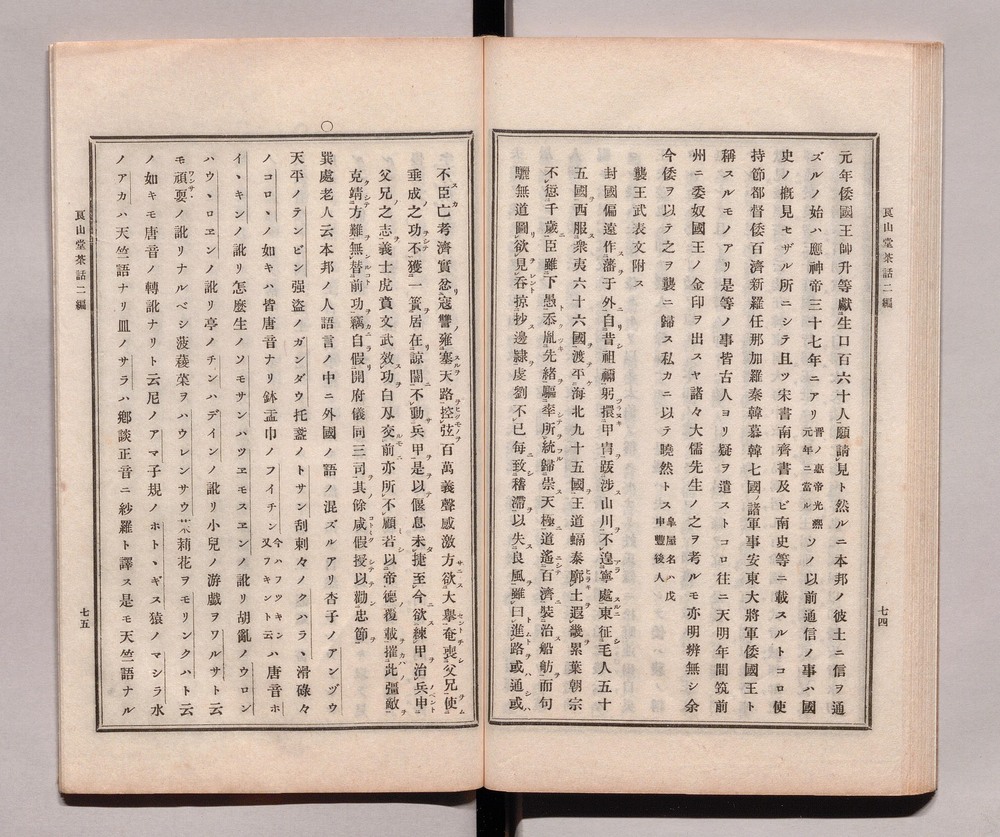 艮山堂茶話二編
七四
元年倭國王帥升等獻生口百六十人願請見ト然ルニ本邦ノ彼土ニ信ヲ通
ズルノ始ハ應神帝三十七年ニアリ晋ノ惠帝光熙元年ニ當ルソノ以前通信ノ事ハ國
史ノ槪見セザル所ニシテ且ツ宋書南齊書及ビ南史等ニ載スルトコロ使
持節都督倭百濟新羅任那加羅秦韓慕韓七國ノ諸軍事安東大將軍倭國王ト
稱スルモノアリ是等ノ事皆古人ヨリ疑ヲ遺ストコロ往ニ天明年間筑前
州ニ委奴國王ノ金印ヲ出スヤ諸々大儒先生ノ之ヲ考ルモ亦明辨無シ余
今倭ヲ以テ之ヲ襲ニ歸ス私カニ以テ曉然トス皐屋名ハ戊申豐後人
襲王武表文附ス
封國偏遠作藩于外自昔祖禰躬擐甲冑跋涉山川不遑寧處東征毛人五十
五國西服衆夷六十六國渡平海北九十五國王道蝠泰廓土遐畿累葉朝宗
不愆千歲臣雖下愚忝胤先緖驅率所統歸崇天極道遙百濟裝治船舫而句
驪無道圖欲見呑掠抄邊隸虔劉不已每致稽滯以失良風雖曰進路或通或
不臣亡考濟實忿寇讐雍塞天路控弦百萬義聲感激方欲大擧奄喪父兄使
垂成之功不獲一簣居在諒闇不動兵甲是以偃息未捷至今欲練甲治兵申
父兄之志義士虎賁文武效功白刄交前亦所不顧若以帝德覆載摧此彊敵
克靖方難無替前功竊自假開府儀同三司其餘咸假授以勸忠節
○
巽處老人云本邦ノ人語言ノ中ニ外國ノ語ノ混ズルアリ杏子ノアンヅウ
天平ノテンビン强盜ノガンダウ托盞ノトサン刮刺々ノクハラヽ滑碌々
ノコロヽノ如キハ皆唐音ナリ鉢盂巾ノフイチン今ハフツキンハ唐音ホ又フキント云
イヽキンノ訛リ怎麽生ノソモサンハツエモスエンノ訛リ胡亂ノウロン
ハウヽロエンノ訛リ亭ノチンハデインノ訛リ小兒ノ游戲ヲワルサト云
モ頑耍ワンサ・ノ訛リナルベシ菠薐菜ヲハウレンサウ茉莉花ヲモリンクハト云
ノ如キモ唐音ノ轉訛ナリト云尼ノアマ子規ノホトヽギス猿ノマシラ水
ノアカハ天竺語ナリ皿ノサラハ鄕談正音ニ紗羅ト譯ス是モ天竺語ナル
艮山堂茶話二編
七五